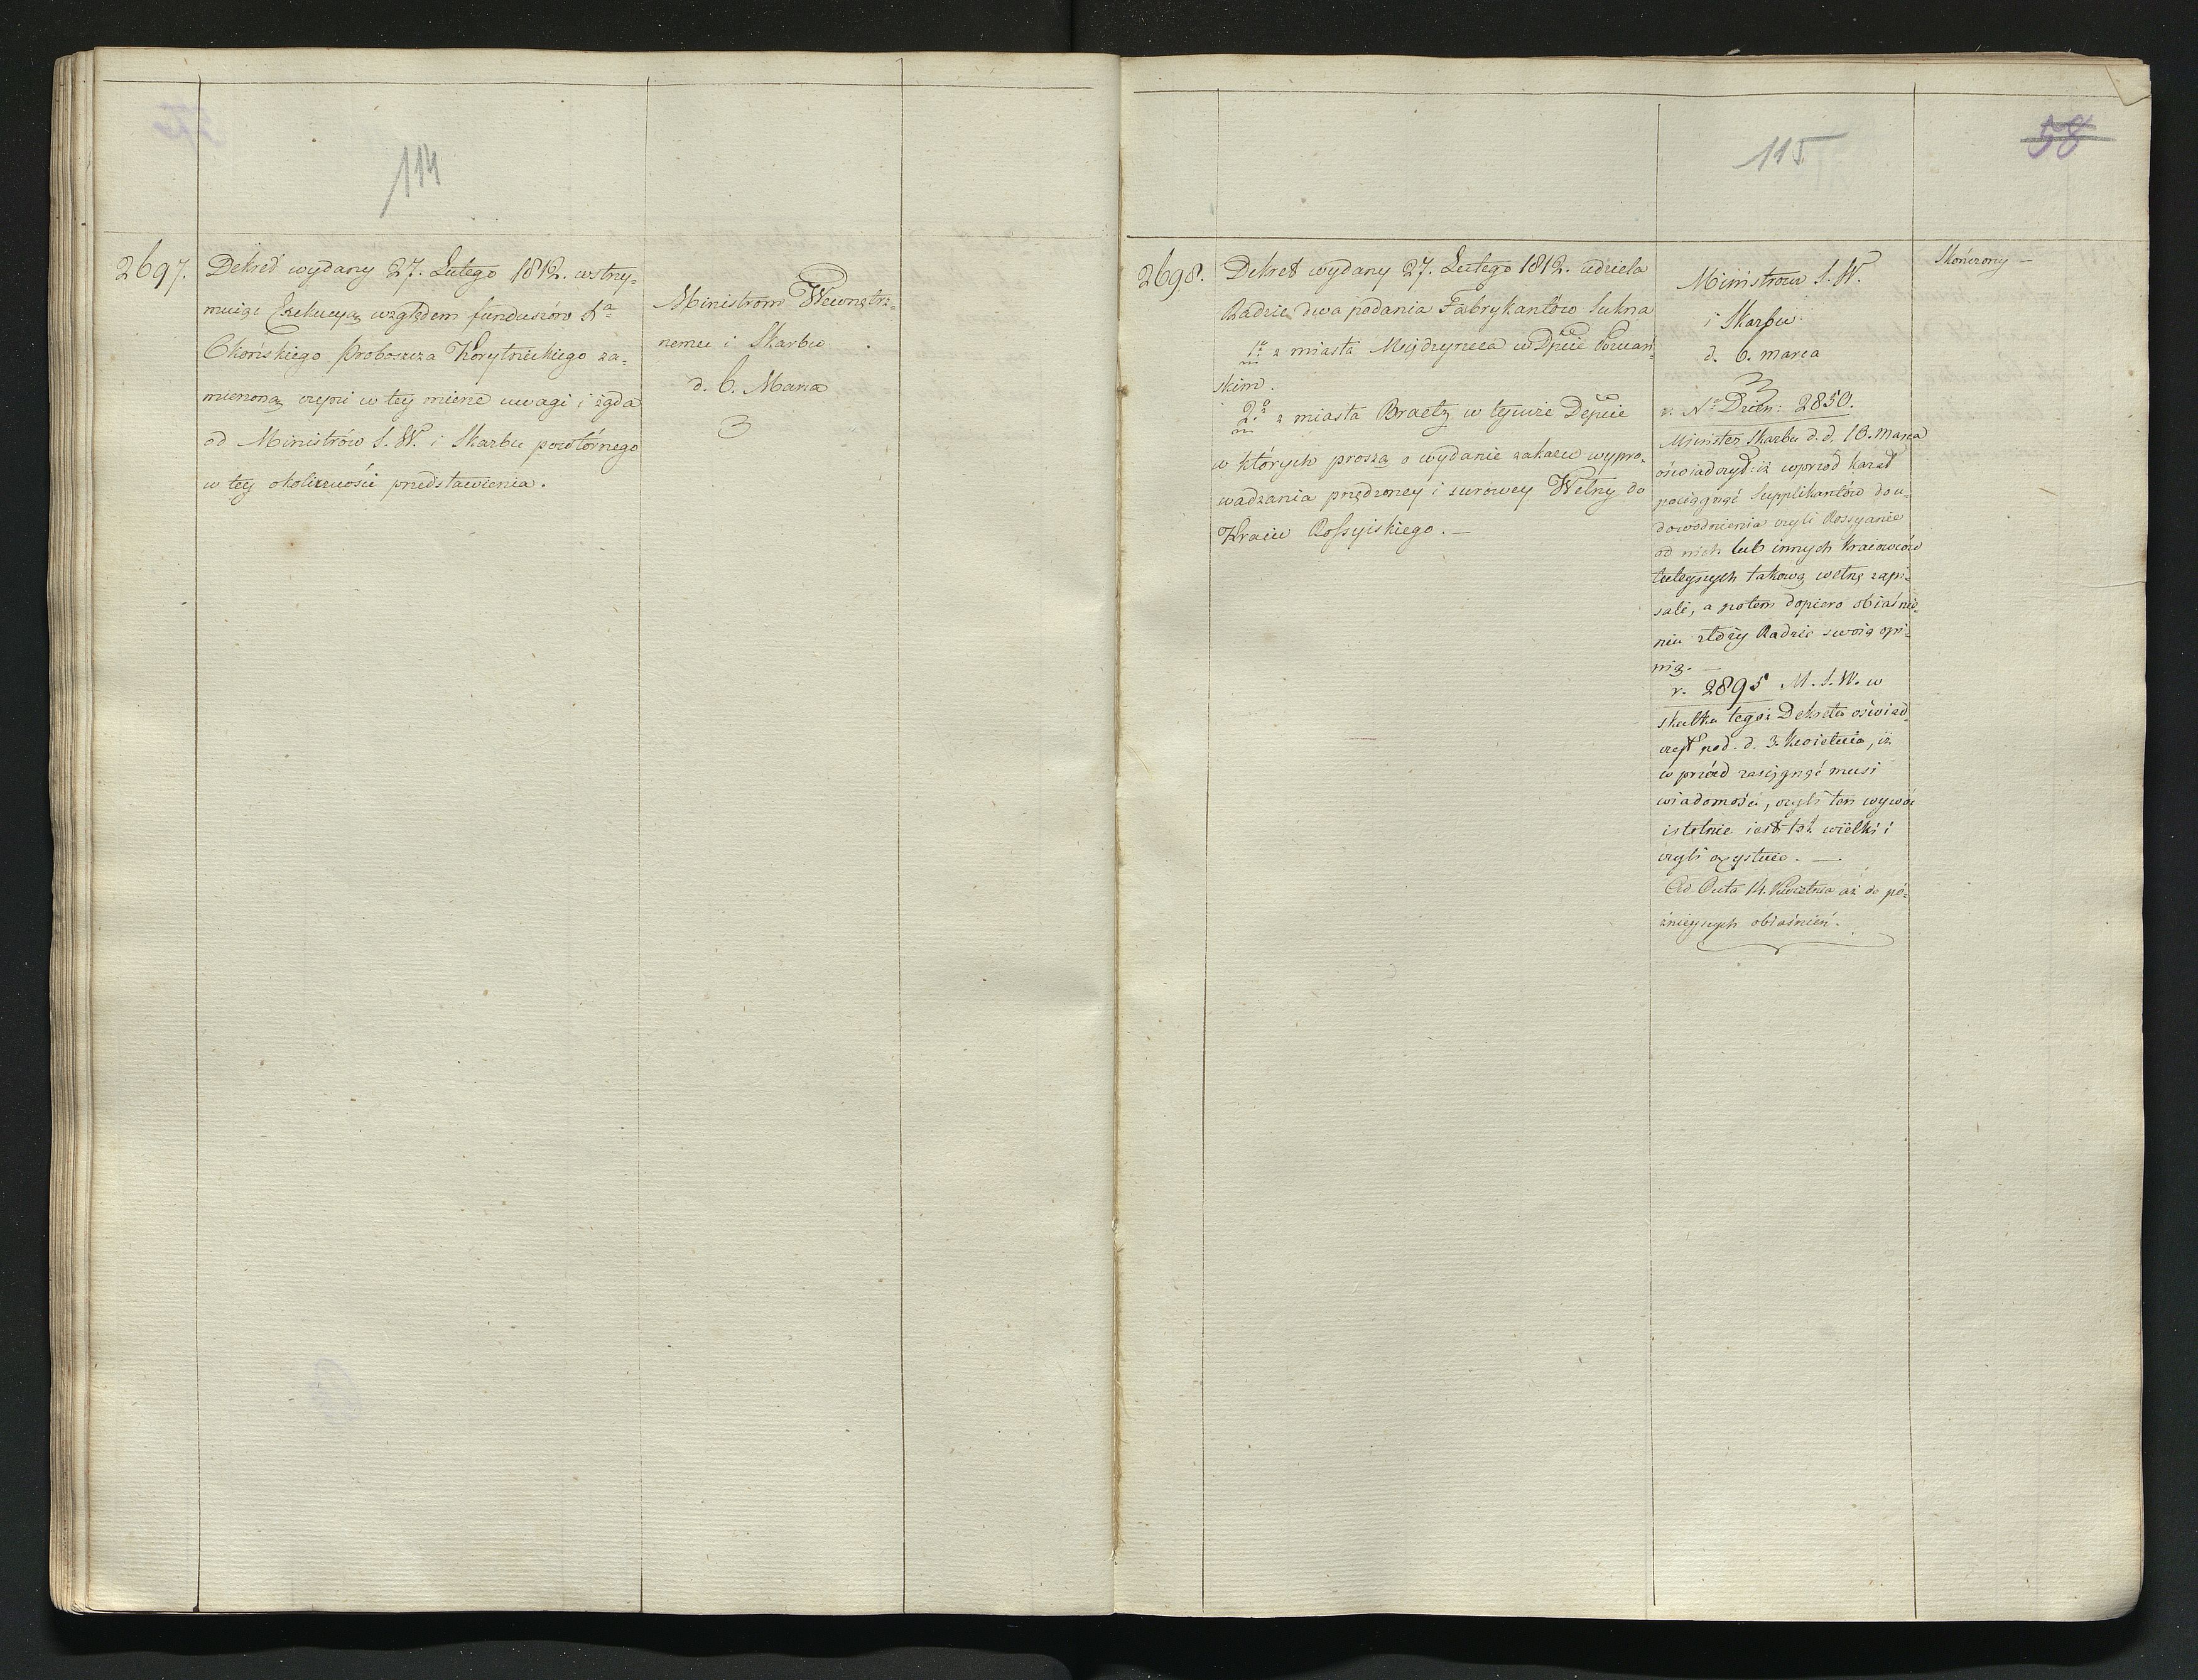 114
2697.
Dekret wydany 27. Lutego 1812. wstrzy-
muiąc Exekucyą względem funduszów Xa
Okońskiego Proboszcza Korytnickiego za-
mierzoną czyni w tey mierze uwagi i żąda
od Ministrów S. W. i Skarbu powtórnego
w tey okoliczności przedstawienia.
Ministrom Wewnętrz-
nemu i Skarbu
d. 6. Marca
3
115
58
2698.
Dekret wydany 27. Lutego 1812. udziela
Radzie dwa podania Fabrykantów Sukna
1o z miasta Międzyrzecza w Dpcie Poznań-
skim.
2o z miasta Braetz w tymże Depcie
w których proszą o wydanie zakazu wypro-
wadzania przędzoney i surowey Wełny do
Kraiu Rossyiskiego. —
Ministrom S. W.
i Skarbu
d. 6. marca
3
v. No Dzien: 2850.
Minister Skarbu d. d. 10. Marca
oświadczył: iż wprzód kazał
pociągnąć Supplikantów do u-
dowodnienia czyli Rossyanie
od nich lub innych Kraiowców
tuteyszych takową wełnę zapi-
sali, a potem dopiero obiaśnie-
niu złoży Radzie swoią opi-
nią. —
v. 2895 M. S. W. w
skutku tegoż Dekretu oświad-
czył pod. d. 3. Kwietnia, iż
wprzód zasięgnąć musi
wiadomości, czyli ten wywóz
istotnie iest tak wielki i
czyli exystuie. —
Ad Acta 14. Kwietnia aż do pó-
źnieyszych obiaśnień.
Skończony —